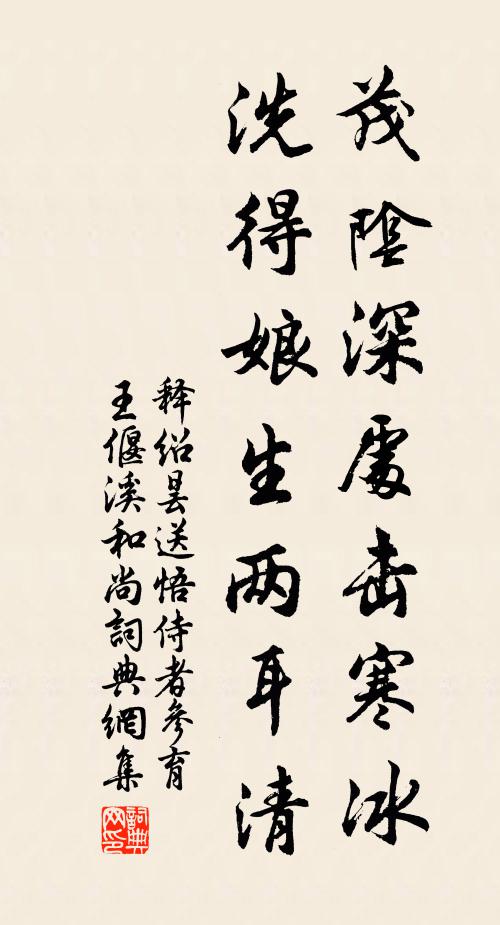 茂陰深處击寒冰
洗得娘生两耳清
释绍昙送悟侍者參育
王偃溪和尚詞典網集
詞典網印